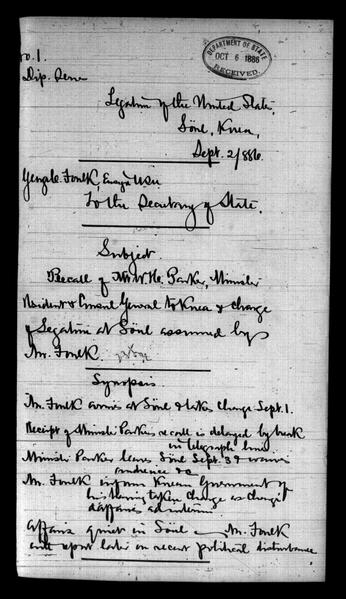 No. 1.
DEPARTMENT OF STATE
OCT 6 1886
RECEIVED
Dip. Series
Legation of the United States,
Söul, Korea,
Sept. 2/886.
George C. Foulk, Ensign USN
To the Secretary of State.
Subject.
Recall of Mr. W. H. Parker, Minister
Resident & Consul General to Korea & charge
of Legation at Söul assumed by
Mr. Foulk.
Synopsis.
Mr. Foulk arrives at Söul & takes charge Sept. 1.
Receipt of Minister Parker's recall is delayed by break
in telegraph line.
Minister Parker leaves Söul Sept. 3d
audience &c
Mr. Foulk informs Korean Government of
his having taken charge as Chargé
d'affaires ad interim
Affairs quiet in Söul — Mr. Foulk
will report later on recent political disturbance